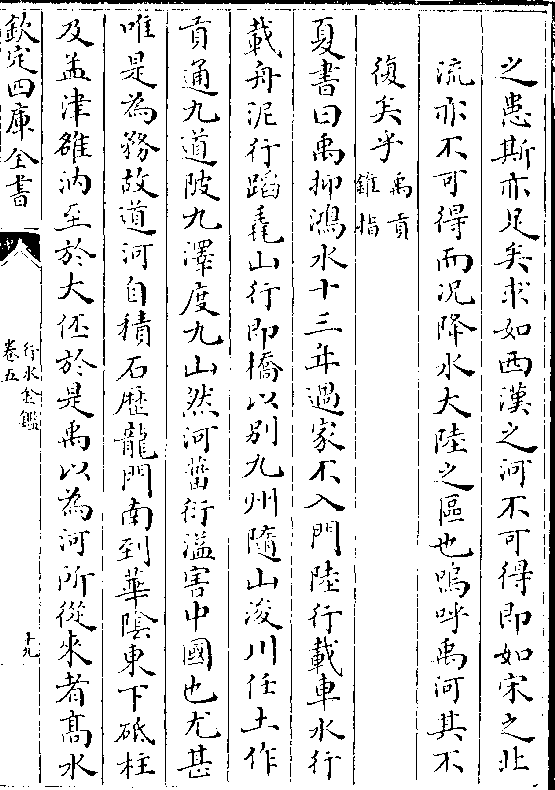 之患斯亦足矣求如西漢之河不可得即如宋之北
流亦不可得而况降水大陸之區也嗚呼禹河其不
復矣乎禹貢
錐指
夏書曰禹抑鴻水十三年過家不入門陸行載車水行
載舟泥行蹈毳山行即橋以别九州隨山浚川任土作
貢通九道陂九澤度九山然河菑衍溢害中國也尤甚
唯是為務故道河自積石歴龍門南到華隂東下砥柱
及孟津雒汭至於大伾於是禹以為河所從來者髙水
欽定四庫全書
行水金鑑
卷五
十九